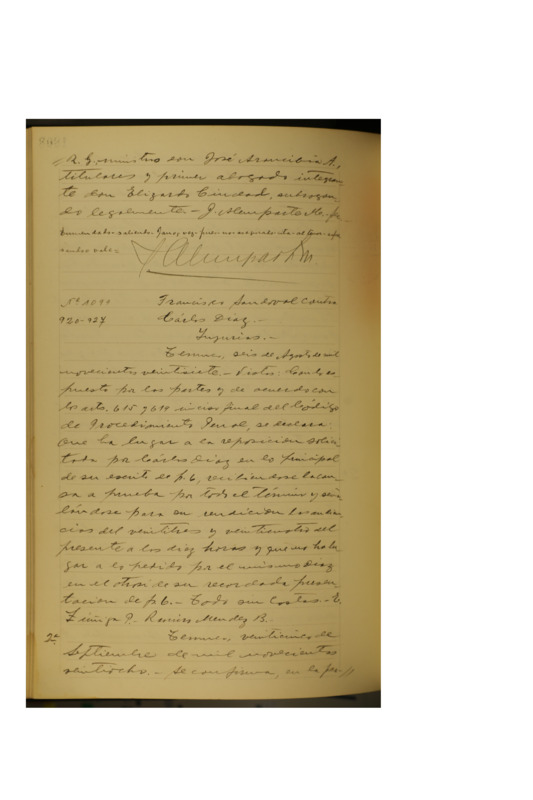 R. G. ministro don José Arancibia A.,
titulares y primer abogado integran-
te don Elizardo Ciudad, subrogan-
do legalmente.- J. Alemparte
vale=
J Alemparte
Nº 1091
Francisco Sandoval contra
920-927
Cárlos Diaz.-
Injurias.-
Temuco, seis de Agosto de mil
novecientos veintisiete.- Vistos: Con lo es-
puesto por las partes y de acuerdo con
los arts. 615 y inciso final del Código
de Procedimiento Penal, se declara:
Que ha lugar a la reposicion solici-
tada por Cárlos Diaz en lo principal
de su escrito de f. 6, recibiendose la cau-
sa a prueba por todo el término y seña-
lándose para su rendicion las audien-
cias del veintitres y veinticuatro del
presente a las diez horas y que no ha lu-
gar a lo pedido por el mismo Diaz
en el otrosi de su recordada presen-
tacion de f. 6.- Todo sin costas.- E.
Zúñiga A. Ramiro Mendez B.-
2ª
Temuco, veinticinco de
Septiembre de mil novecientos
veintiocho.- Se confirma, en la par-//